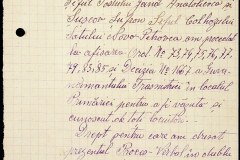 Șeful Postului Jand. Anatolievca și
Sușcov Supon Șeful Colhozului
Satului Novo-Petrovca am procedat
la afișarea Ord. No 73, 74, 75, 76, 77,
79, 83, 85 și Decizia No 1667 a Guver-
nământului Trasnistriei în localul
Primăriei pentru a fi văzute și
cunoscut de toți locuitorii.
Drept pentru care am dresat
prezentul Proces-Verbal în dublu